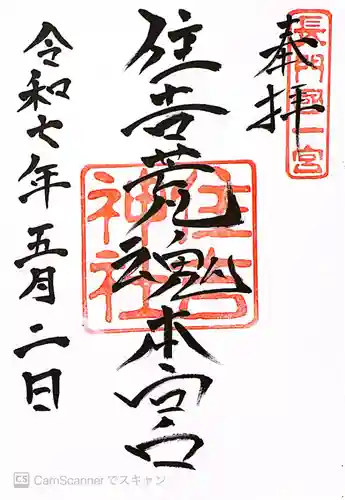 奉拝
長門國一宮
住吉荒魂本宮
住吉神社
令和七年五月二日
CS CamScanner でスキャン